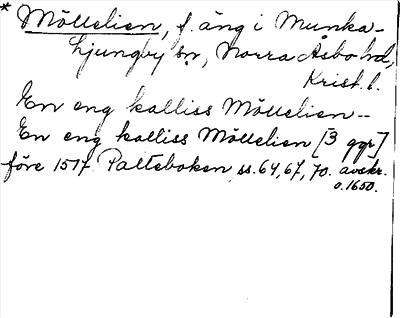 * Möllelien, f. äng i Munka-
Ljungby sn, Norra Åsbo hd,
Krist. l.
En eng kalliss Möllelien --
En eng kalliss Möllelien [3 ggr]
före 1517. Palteboken ss. 64, 67, 70. avskr.
o. 1650.